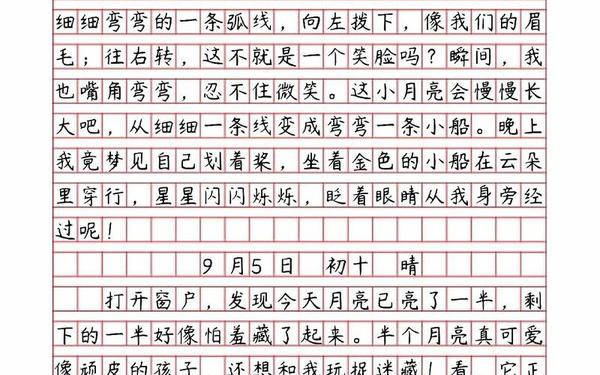 细细弯弯的一条弧线，向左拨下，像我们的眉
毛；往右转，这不就是一个笑脸吗？瞬间，我
也嘴角弯弯，忍不住微笑。这小月亮会慢慢长
大吧，从细细一条线变成弯弯一条小船。晚上
我竟梦见自己划着桨，坐着金色的小船在云朵
里穿行，星星闪闪烁烁，眨着眼睛从我身旁经
过呢！
9月5日 初十 晴
打开窗户，发现今天月亮已亮了一半，剩
下的一半好像怕羞藏了起来。半个月亮真可爱
像顽皮的孩子 还想和我玩捉迷藏！看 它正